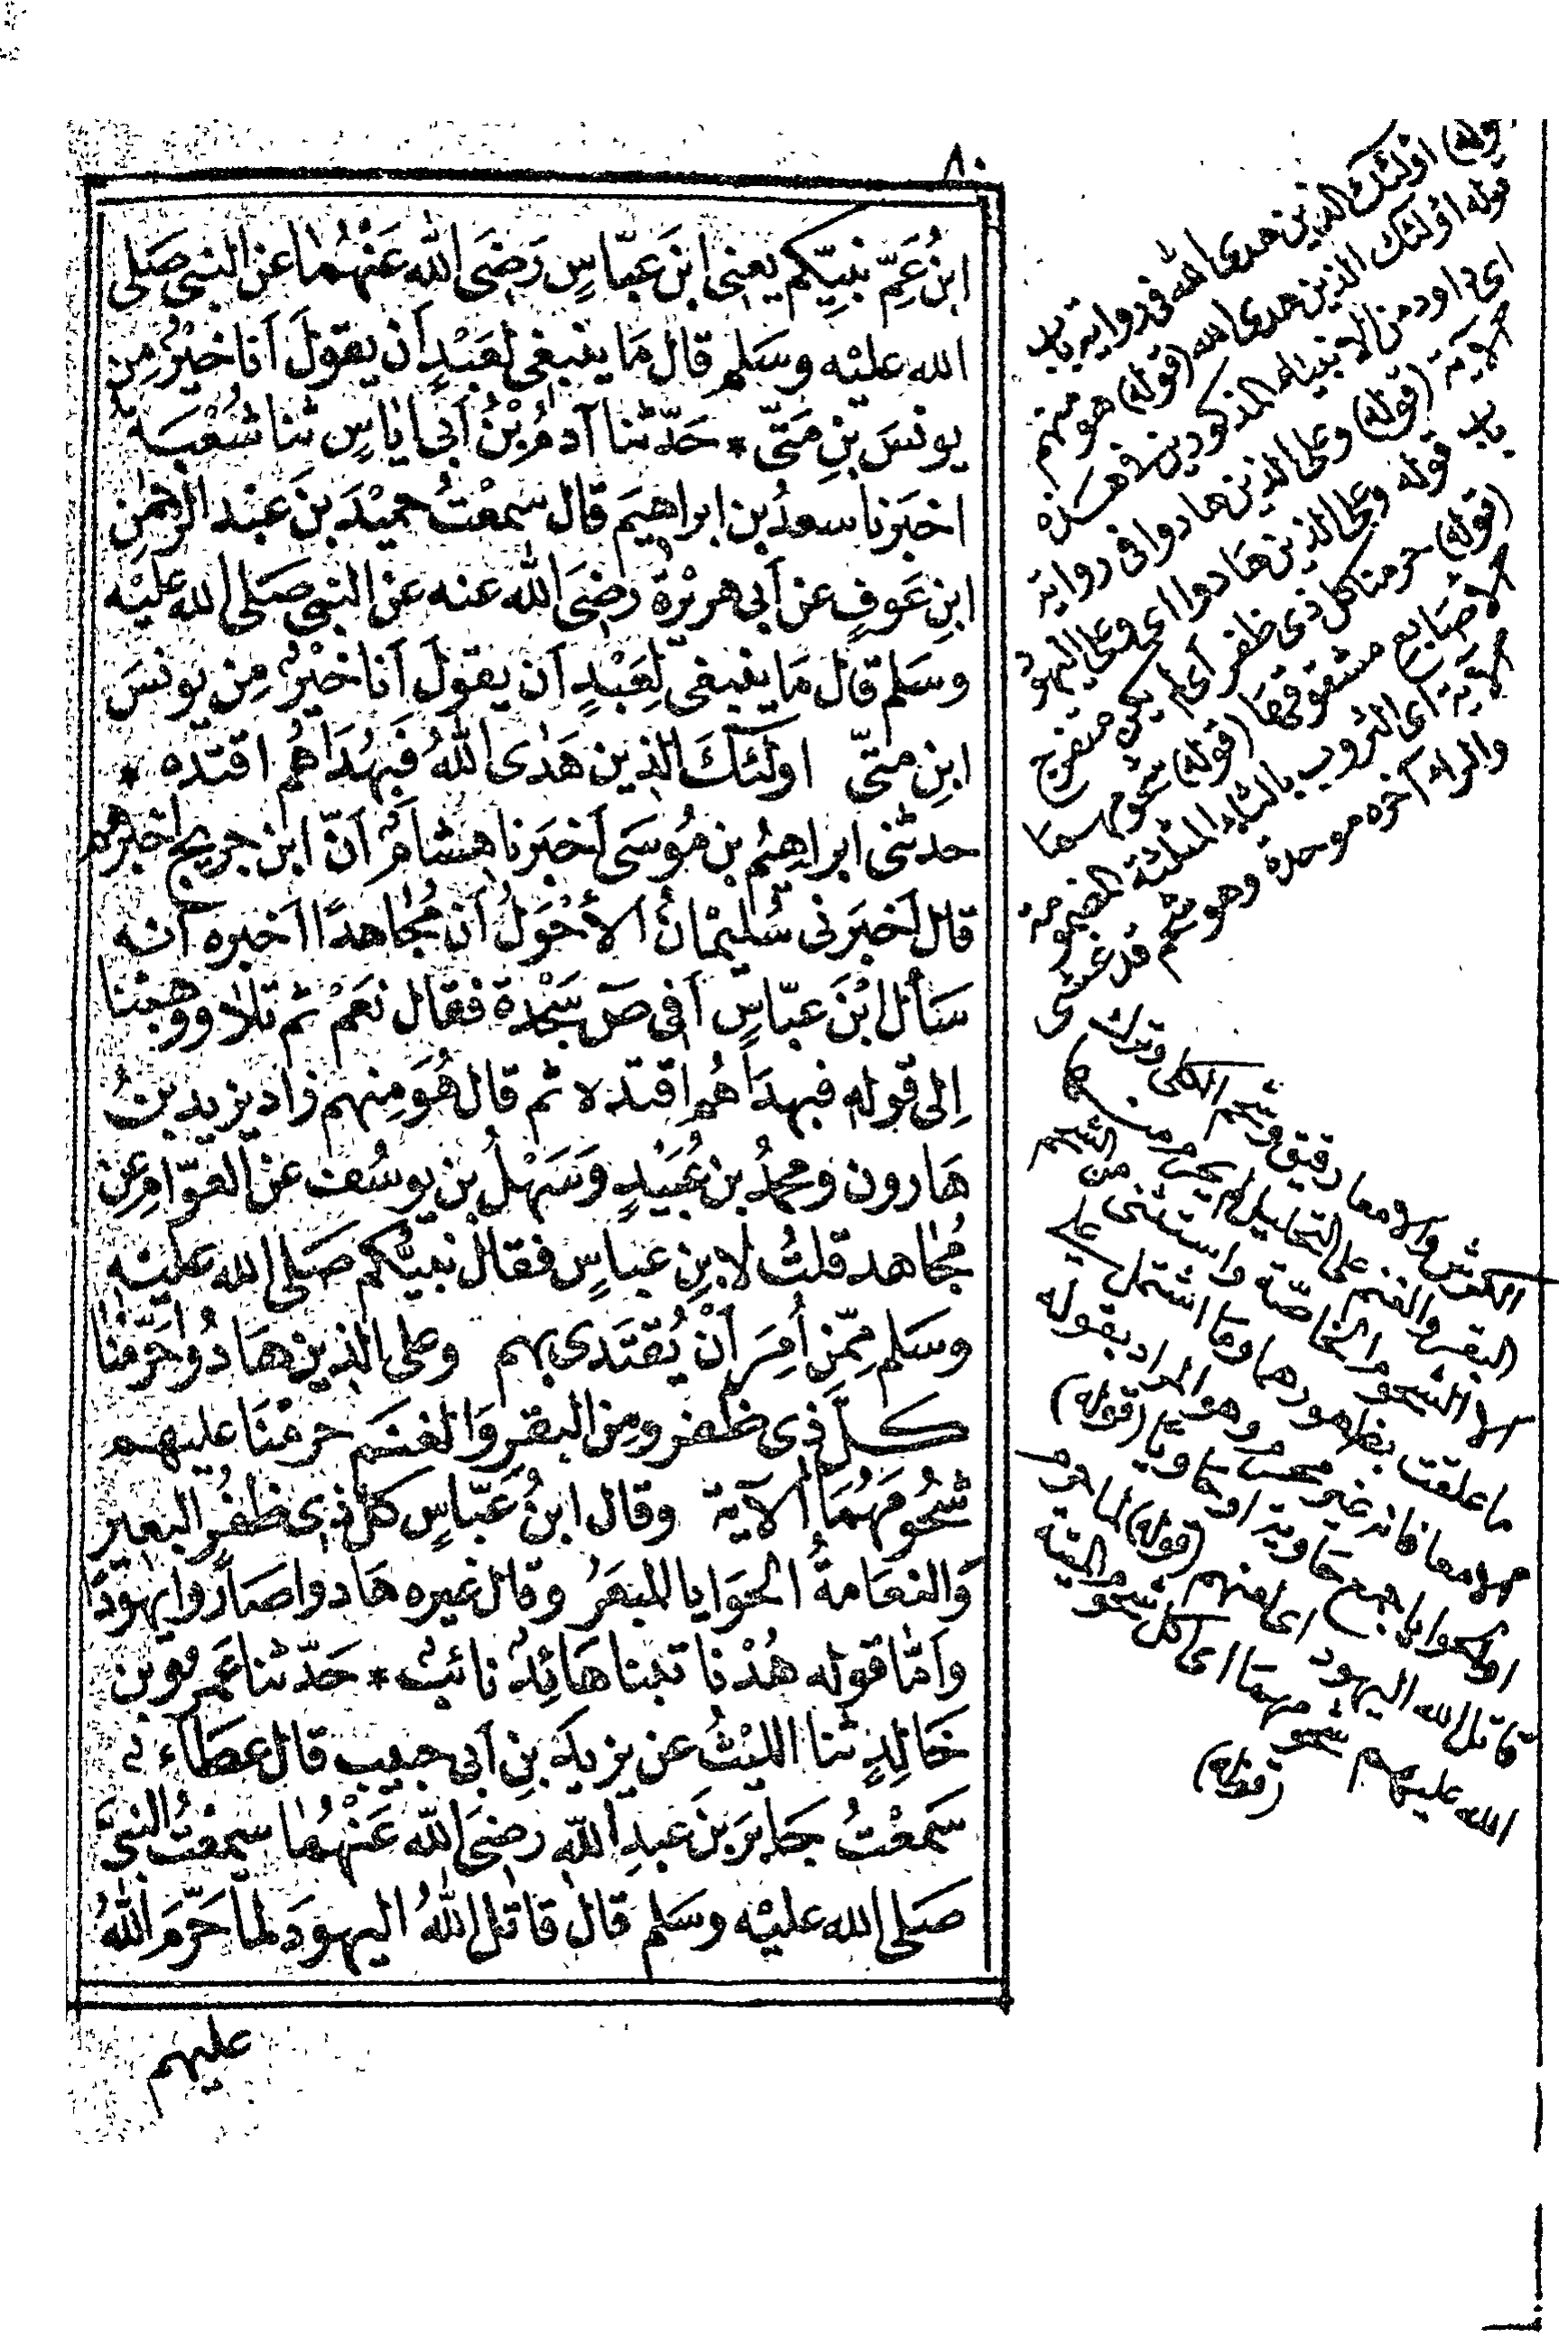 ٨٠
ابنُ عَمِّ نبيِّكم يعنى ابنَ عبّاسٍ رَضِىَ اللهُ عَنْهُمَا عن النبى صَلى
الله عليْه وسَلم قال مَا ينبغى لعَبْدٍ أن يقولَ أنا خيْرٌ مِن
يونسَ بنِ مَتّى * حَدّثنا آدمُ بْنُ أبى اياسٍ ثنا شُعْبَة
اخبَرنا سعدُ بن ابراهيمَ قال سمعْتُ حميْدَ بنَ عبْد الرحمٰنِ
ابنِ عَوفٍ عن أبى هريْرةَ رضىَ اللهُ عنه عن النبى صَلى الله عليْه
وسَلم قال مَا ينبغى لِعَبْدٍ أن يقولَ أنا خيْرٌ مِن يونسَ
ابنِ متّى اولَئكَ الذين هَدٰى اللهُ فَبِهُدَاهُم اقتدِه *
حدثنى ابراهِيْم بن مُوسَى أخبَرنا هشامٌ أنّ ابن جريج اخبرهم
قال أخبَرنى سُليْمانُ الأحْوَلُ أن مُجاهدًا اخبره أنه
سَأل ابْنَ عبّاسٍ أفى صٓ سَجْدة فقال نعَمْ ثم تَلا ووهبْنا
اِلى قوله فبهدَاهُم اقتدِه ثم قال هُوَ مِنهم زاد يزيد بنُ
هَارون ومحمدُ بن عُبَيْدٍ وَسَهْلُ بن يوسُف عن العوّامِ عن
مُجاهد قلتُ لابنِ عباسٍ فقال نبيّكم صَلى الله عليْه
وسَلم مِمّن أُمِرَ أنْ يُقتَدى بهم وعلى الذين هَادُوا حَرّمْنا
كلَّ ذى ظفر ومِن البقرِ وَالغنَم حرمْنَا عليهم
شحُومَهُمَا الآية وقال ابنُ عَبّاسٍ كل ذى ظفُرٍ البعير
وَالنعَامةُ الحَوَايا المبعَرُ وقال غيره هَادوا صَارُوا يهودًا
وأمّا قوله هُدْنا تبْنا هَائِدٌ تائبٌ * حَدّثنا عَمرُو بن
خَالِدٍ ثنا الليْثُ عن يزيدَ بنِ أبى حبيب قال عطَاء
سَمعْتُ جَابرَ بنَ عبدِ اللهِ رضىَ اللهُ عَنْهُمَا سمعْتُ النبىَّ
صَلى الله عليْه وسَلم قال قاتل اللهُ اليهودَ لما حَرّمَ اللهُ
عليهم
(قوله) اولئك الذين هدى الله فى رواية باب
قوله اولئك الذين هدى الله (قوله) هو منهم
اى داود من الانبياء المذكورين فى هذه
الآية (قوله) وعلى الذين هادوا فى رواية
باب قوله وعلى الذين هادوا اى وعلى اليهود
(قوله) حرمنا كل ذى ظفر اى لم يكن منفرج
الاصابع مشقوقها (قوله) شحومهما
الآية اى الثروب بالثاء المثلثة المضمومة
والراء آخره موحدة وهو شحم قد غشى
الكرش والامعاء رقيق وشحم الكلى وترك
البقر والغنم على التحليل لم يحرم منهما
الا الشحوم الخاصّة واستثنى من الشحم
ما علقت بظهورهما وما اشتمل على
الامعاء فانه غير محرم وهو المراد بقوله
او الحوايا جمع حاوية او حاوياء (قوله)
قاتل الله اليهود اى لعنهم (قوله) لما حرم
الله عليهم شحومهما اى اكل شحوم الميتة
(قوله)